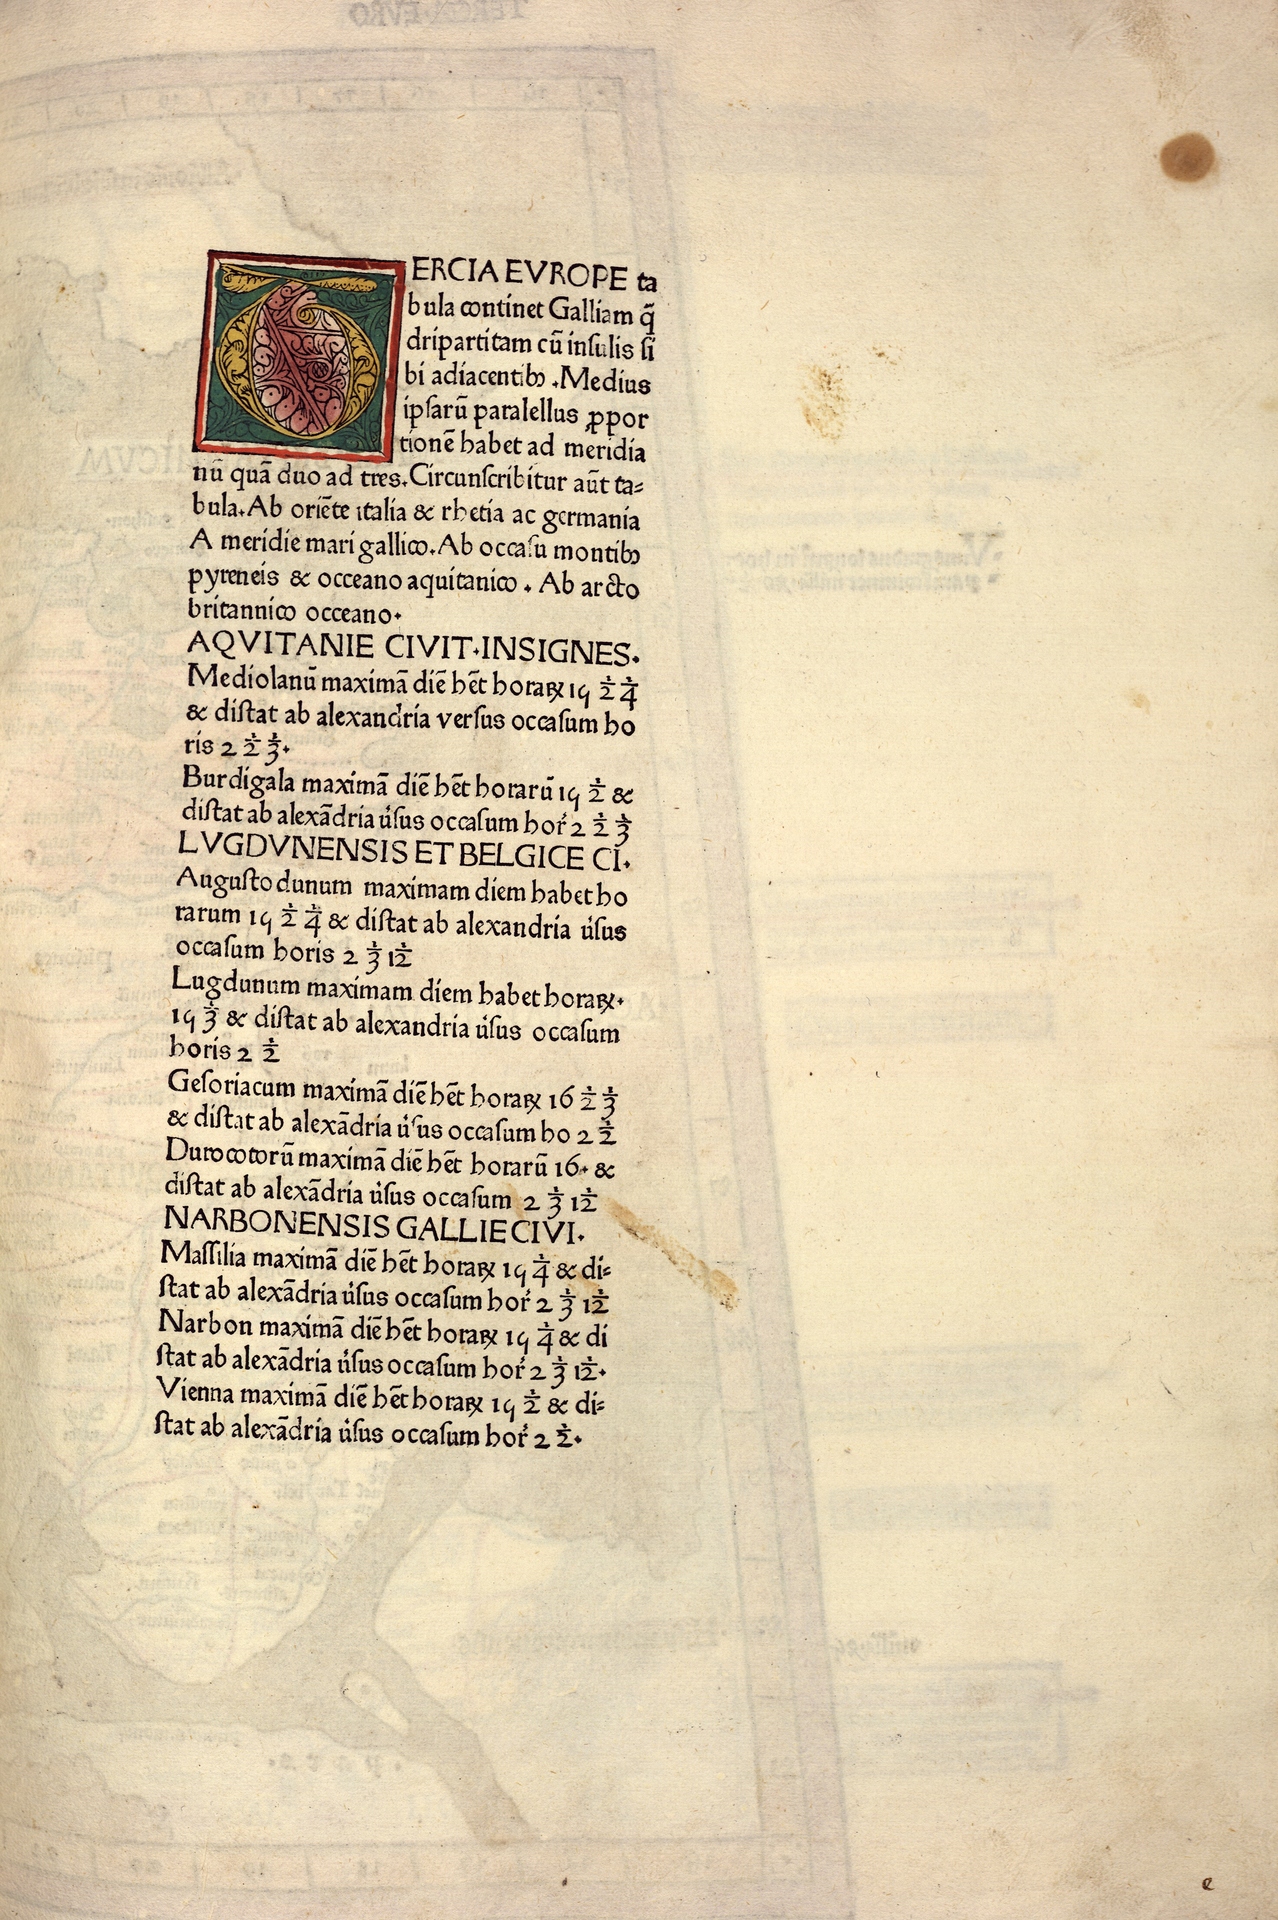 TERCIA EVROPE ta
bula continet Galliam q̄
dripartitam cū inſulis ſi
bi adiacentibꝫ .Medius
ipſarū paralellus ꝓpor
tionē habet ad meridia
nū quā duo ad tres.Circunſcribitur aūt ta⸗
bula.Ab oriēte italia & rhetia ac germania
A meridie mari gallico.Ab occaſu montibꝫ
pyreneis & occeano aquitanico . Ab arcto
britannico occeano.
AQVITANIE CIVIT.INSIGNES.
Mediolanū maximā diē hēt horaꝝ 15 ½ ¼
& diſtat ab alexandria verſus occaſum ho
ris 2 ½ ⅓.
Burdigala maximā diē hēt horarū 15 ½ &
diſtat ab alexādria ůſus occaſum hor̄ 2 ½ ⅓
LVGDVNENSIS ET BELGICE CI.
Auguſtodunum maximam diem habet ho
rarum 15 ½ ¼ & diſtat ab alexandria ůſus
occaſum horis 2 ⅓ 1̇2̄
Lugdunum maximam diem habet horaꝝ.
15 ⅓ & diſtat ab alexandria ůſus occaſum
horis 2 ½
Geſoriacum maximā diē hēt horaꝝ 16 ½ ⅓
& diſtat ab alexādria ůſus occaſum ho 2 ½
Durocotorū maximā diē hēt horarū 16. &
diſtat ab alexādria ůſus occaſum 2 ⅓ 1̇2̄
NARBONENSIS GALLIE CIVI.
Maſſilia maximā diē hēt horaꝝ 15 ¼ & di⸗
ſtat ab alexādria ůſus occaſum hor̄ 2 ⅓ 1̇2̄
Narbon maximā diē hēt horaꝝ 15 ¼ & di
ſtat ab alexādria ůſus occaſum hor̄ 2 ⅓ 1̇2̄.
Vienna maximā diē hēt horaꝝ 15 ½ & di⸗
ſtat ab alexādria ůſus occaſum hor̄ 2 ½.
e